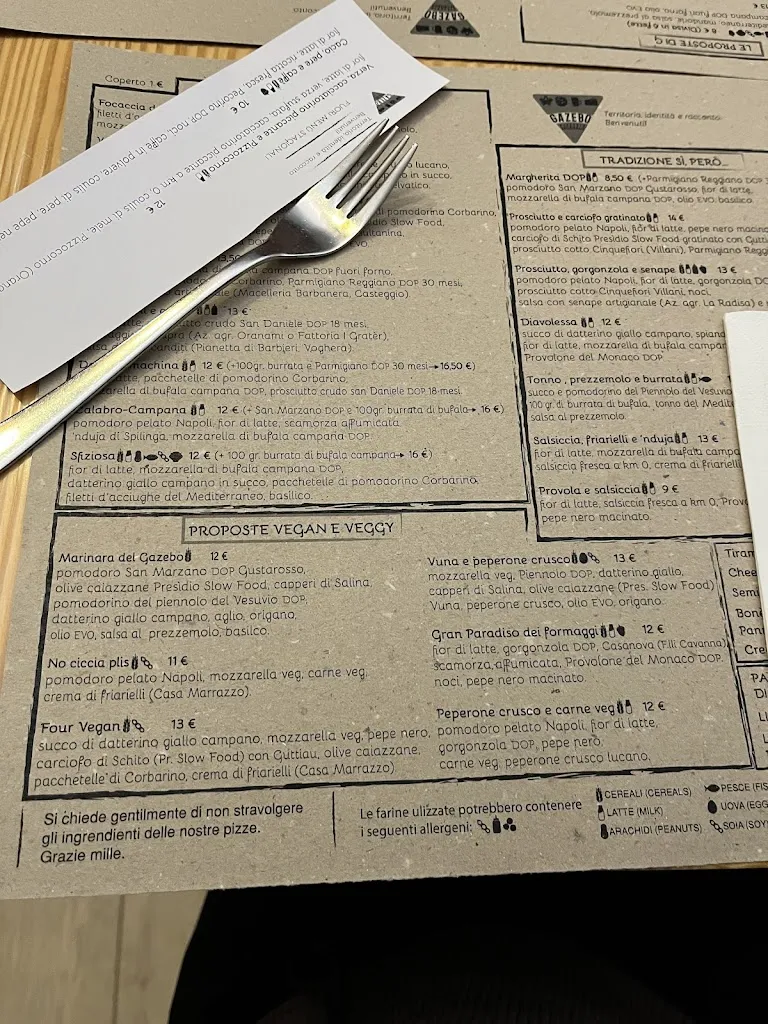 LE PROPOSTE DI G
GAZEBO
Coperto 1 €
Focaccia d
filetti d'
mozz
Verza, cacciatorino piccante e Pizzocorno 12 €
fior di latte, verza stufata, cacciatorino piccante a km 0, coulis di mele, Pizzocorno
Cacio, pere e caffè 10 €
fior di latte, ricotta fresca, pecorino DOP, noci, caffè in polvere, coulis di pere, pepe ne
FUORI MENÙ STAGIONALI
Territorio, identità e racconto
Benvenuti!
GAZEBO
Territorio, identità e racconto.
Benvenuti!
lucano,
in succo,
di pomodorino Corbarino,
io Slow Food,
campana DOP fuori forno,
Corbarino, Parmigiano Reggiano DOP 30 mesi,
(Macelleria Barbanera, Casteggio).
13 €
tto crudo San Daniele DOP 18 mesi,
(Az. agr. Oranami o Fattoria I Gratér),
canditi (Pianetta di Barbieri, Voghera).
machina 12 € (+100gr. burrata e Parmigiano DOP 30 mesi→16,50 €)
latte, pacchetelle di pomodorino Corbarino,
mozzarella di bufala campana DOP, prosciutto crudo san Daniele DOP 18 mesi.
Calabro-Campana 12 € (+ San Marzano DOP e 100gr. burrata di bufala→ 16 €)
pomodoro pelato Napoli, fior di latte, scamorza affumicata,
'nduja di Spilinga, mozzarella di bufala campana DOP.
Sfiziosa 12 € (+ 100 gr. burrata di bufala campana→ 16 €)
fior di latte, mozzarella di bufala campana DOP,
datterino giallo campano in succo, pacchetelle di pomodorino Corbarino,
filetti d'acciughe del Mediterraneo, basilico.
TRADIZIONE SÌ, PERÒ...
Margherita DOP 8,50 € (+Parmigiano Reggiano DOP
pomodoro San Marzano DOP Gustarosso, fior di latte,
mozzarella di bufala campana DOP, olio EVO, basilico.
Prosciutto e carciofo gratinato 14 €
pomodoro pelato Napoli, fior di latte, pepe nero macina
carciofo di Schito Presidio Slow Food gratinato con Gutt
prosciutto cotto Cinquefiori (Villani), Parmigiano Regg
Prosciutto, gorgonzola e senape 13 €
pomodoro pelato Napoli, fior di latte, gorgonzola DO
prosciutto cotto Cinquefiori Villani, noci,
salsa con senape artigianale (Az. agr. La Radisa) e
Diavolessa 12 €
succo di datterino giallo campano, spiana
fior di latte, mozzarella di bufala campar
Provolone del Monaco DOP.
Tonno, prezzemolo e burrata
succo e pomodorino del Piennolo del Vesuvi
100 gr. di burrata di bufala, tonno del Medit
salsa al prezzemolo.
Salsiccia, friarielli e 'nduja 13 €
fior di latte, mozzarella di bufala campa
salsiccia fresca a km 0, crema di friariell
Provola e salsiccia 9 €
fior di latte, salsiccia fresca a km 0, Prov
pepe nero macinato.
PROPOSTE VEGAN E VEGGY
Marinara del Gazebo 12 €
pomodoro San Marzano DOP Gustarosso,
olive caiazzane Presidio Slow Food, capperi di Salina,
pomodorino del piennolo del Vesuvio DOP,
datterino giallo campano, aglio, origano,
olio EVO, salsa al prezzemolo, basilico.
No ciccia plis 11 €
pomodoro pelato Napoli, mozzarella veg, carne veg,
crema di friarielli (Casa Marrazzo).
Four Vegan 13 €
succo di datterino giallo campano, mozzarella veg, pepe nero,
carciofo di Schito (Pr. Slow Food) con Guttiau, olive caiazzane,
pacchetelle di Corbarino, crema di friarielli (Casa Marrazzo)
Vuna e peperone crusco 13 €
mozzarella veg, Piennolo DOP, datterino giallo,
capperi di Salina, olive caiazzane (Pres. Slow Food)
Vuna, peperone crusco, olio EVO, origano.
Gran Paradiso dei formaggi 12 €
fior di latte, gorgonzola DOP, Casanova (F.lli Cavanna),
scamorza affumicata, Provolone del Monaco DOP,
noci, pepe nero macinato.
Peperone crusco e carne veg 12 €
pomodoro pelato Napoli, fior di latte,
gorgonzola DOP, pepe nero,
carne veg, peperone crusco lucano.
Tiram
Chee
Sem
Bon
Pan
Cre
PA
DI
LI
Si chiede gentilmente di non stravolgere
gli ingredienti delle nostre pizze.
Grazie mille.
Le farine ulizzate potrebbero contenere
i seguenti allergeni:
CEREALI (CEREALS)
LATTE (MILK)
ARACHIDI (PEANUTS)
PESCE (FIS
UOVA (EGG
SOIA (SOY